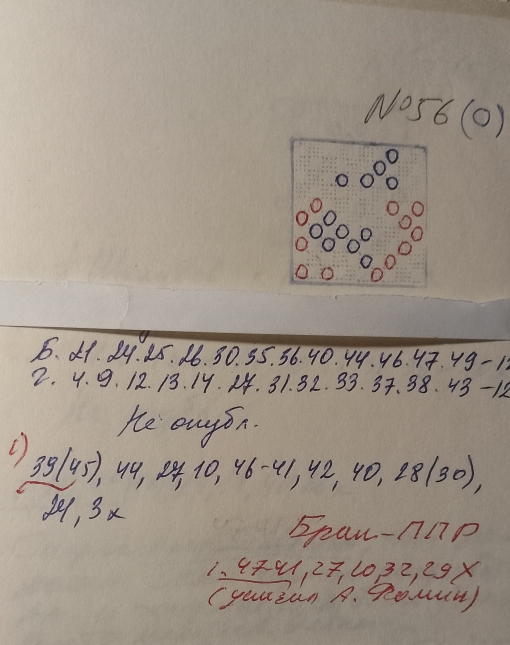 №56(0)
Б. 21. 24. 25. 26. 30. 35. 36. 40. 44. 46. 47. 49 - 12
Г. 4. 9. 12. 13. 14. 27. 31. 32. 33. 37. 38. 43 - 12
Не опубл.
1) 39(45), 44, 27, 10, 46-41, 42, 40, 28(30),
24, 3x
Брак-ППР
1. 47-41, 27, 20, 32, 29X
А. Фомин)